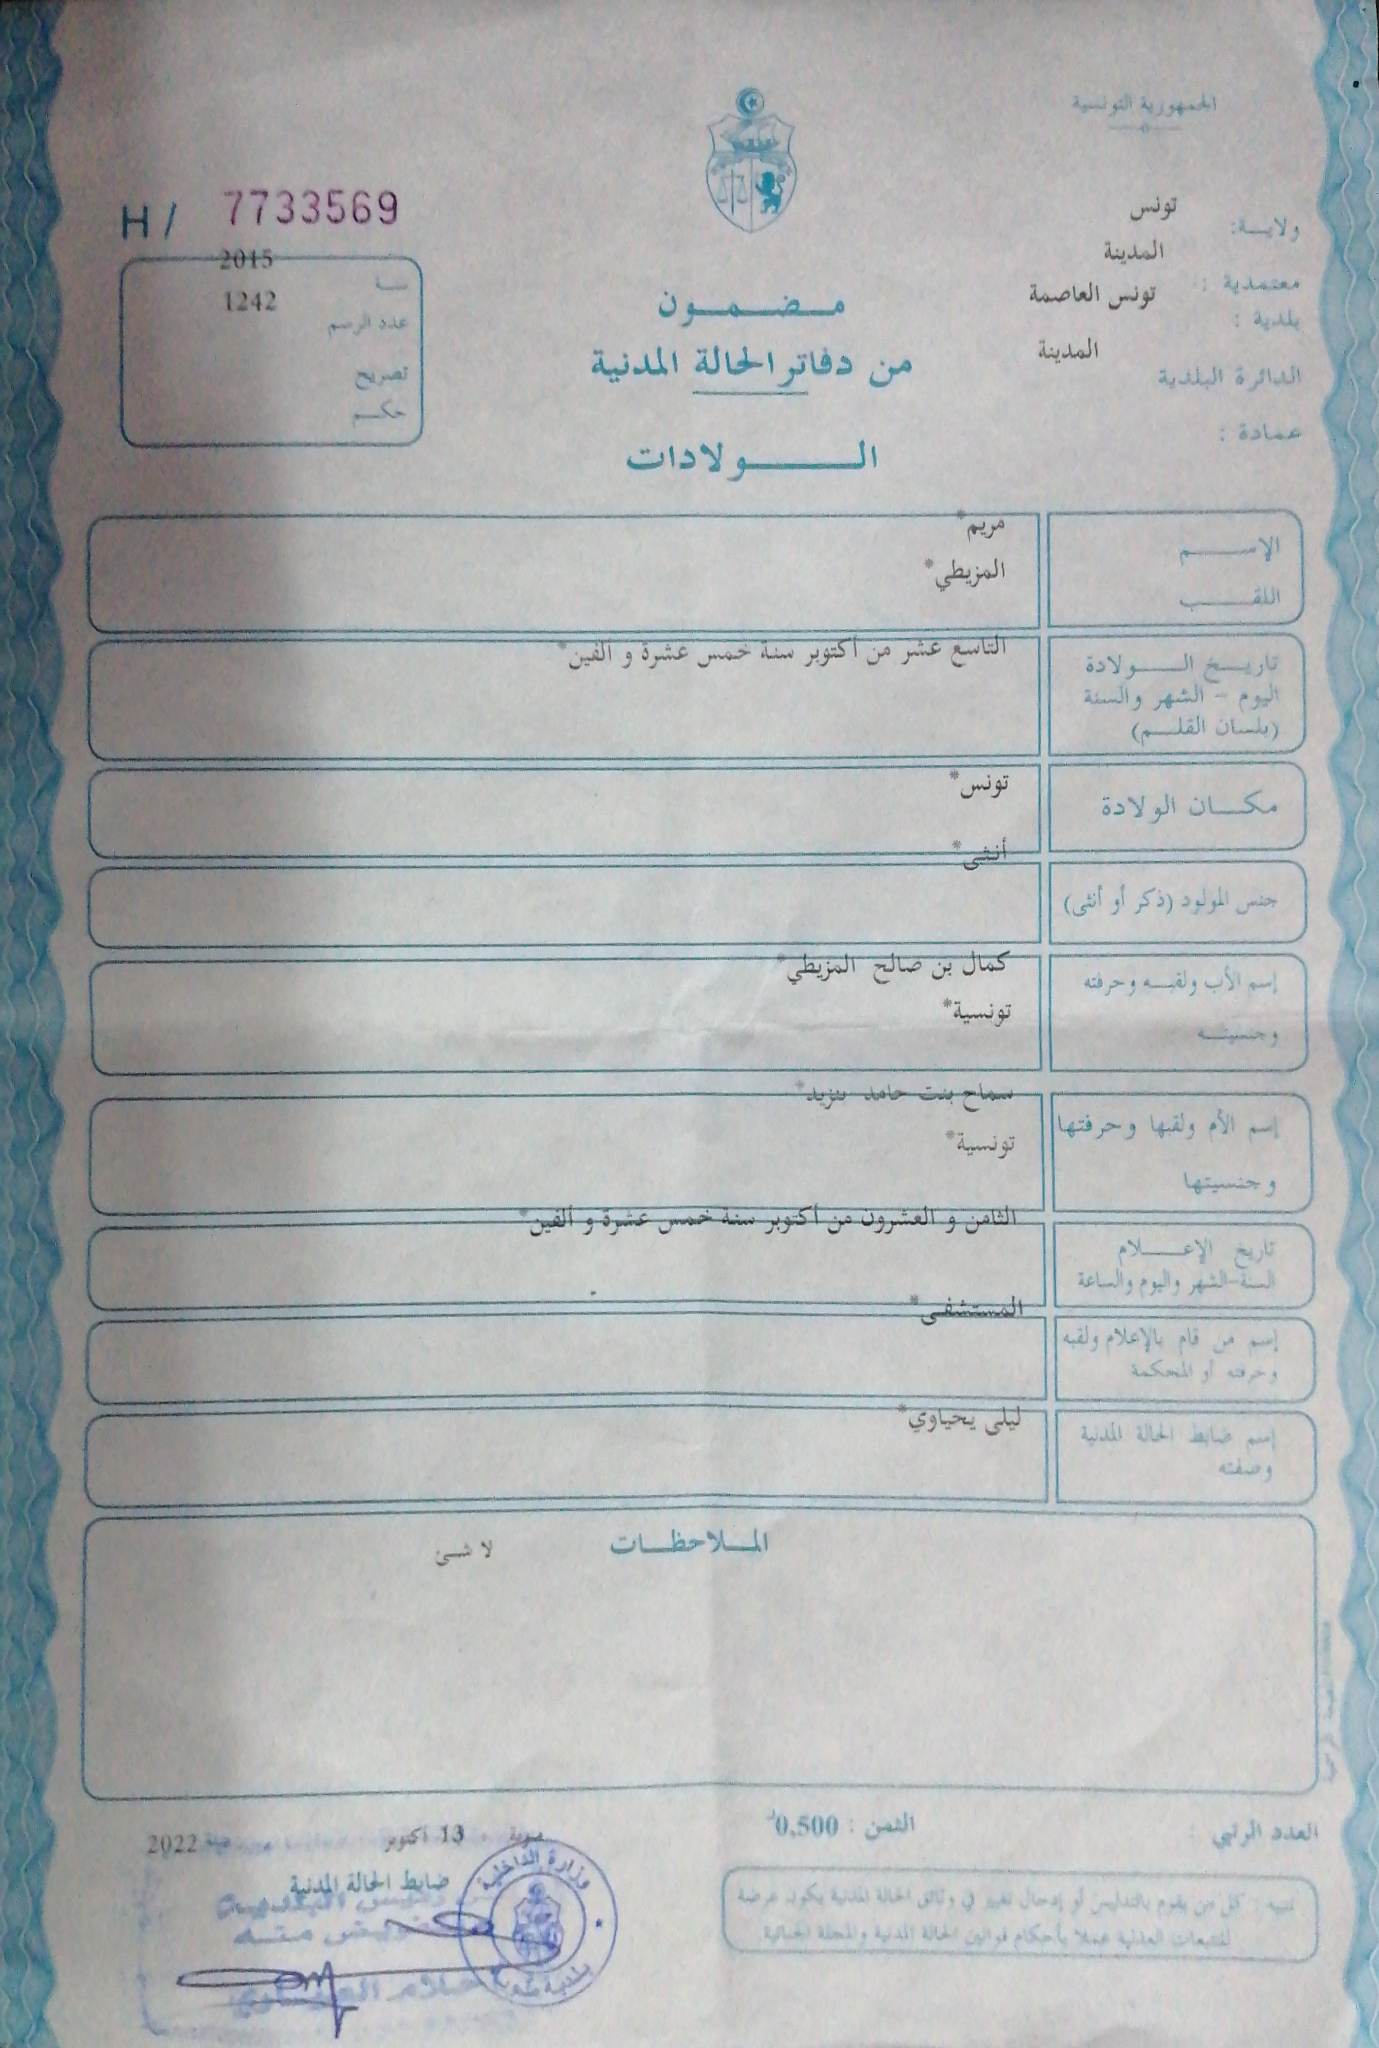 الجمهورية التونسية
H / 7733569
ولايـة: تونس
معتمدية : المدينة
بلدية : تونس العاصمة
الدائرة البلدية المدينة
عمادة :
سنة 2015
عدد الرسم 1242
تصريح
حكم
مضمون
من دفاتر الحالة المدنية
الولادات
الإسم مريم*
اللقب المزيطي*
تاريخ الولادة
اليوم - الشهر والسنة
(بلسان القلم)
التاسع عشر من أكتوبر سنة خمس عشرة و ألفين*
مكان الولادة تونس*
جنس المولود (ذكر أو أنثى) أنثى*
إسم الأب ولقبه وحرفته كمال بن صالح المزيطي*
وجنسيته تونسية*
إسم الأم ولقبها وحرفتها سماح بنت حامد بنزيد*
وجنسيتها تونسية*
تاريخ الإعلام
السنة-الشهر واليوم والساعة
الثامن و العشرون من أكتوبر سنة خمس عشرة و ألفين*
إسم من قام بالإعلام ولقبه
وحرفته أو المحكمة
المستشفى*
إسم ضابط الحالة المدنية
وصفته
ليلى يحياوي*
الملاحظات
لا شئ
العدد الرتبي :
الثمن : 0,500د
13 أكتوبر سنة 2022
ضابط الحالة المدنية
وزارة الداخلية
بلدية
تنبيه : كل من يقوم بالتدليس أو إدخال تغيير في وثائق الحالة المدنية يكون عرضة
للتتبعات العدلية عملا بأحكام قوانين الحالة المدنية والمجلة الجنائية.